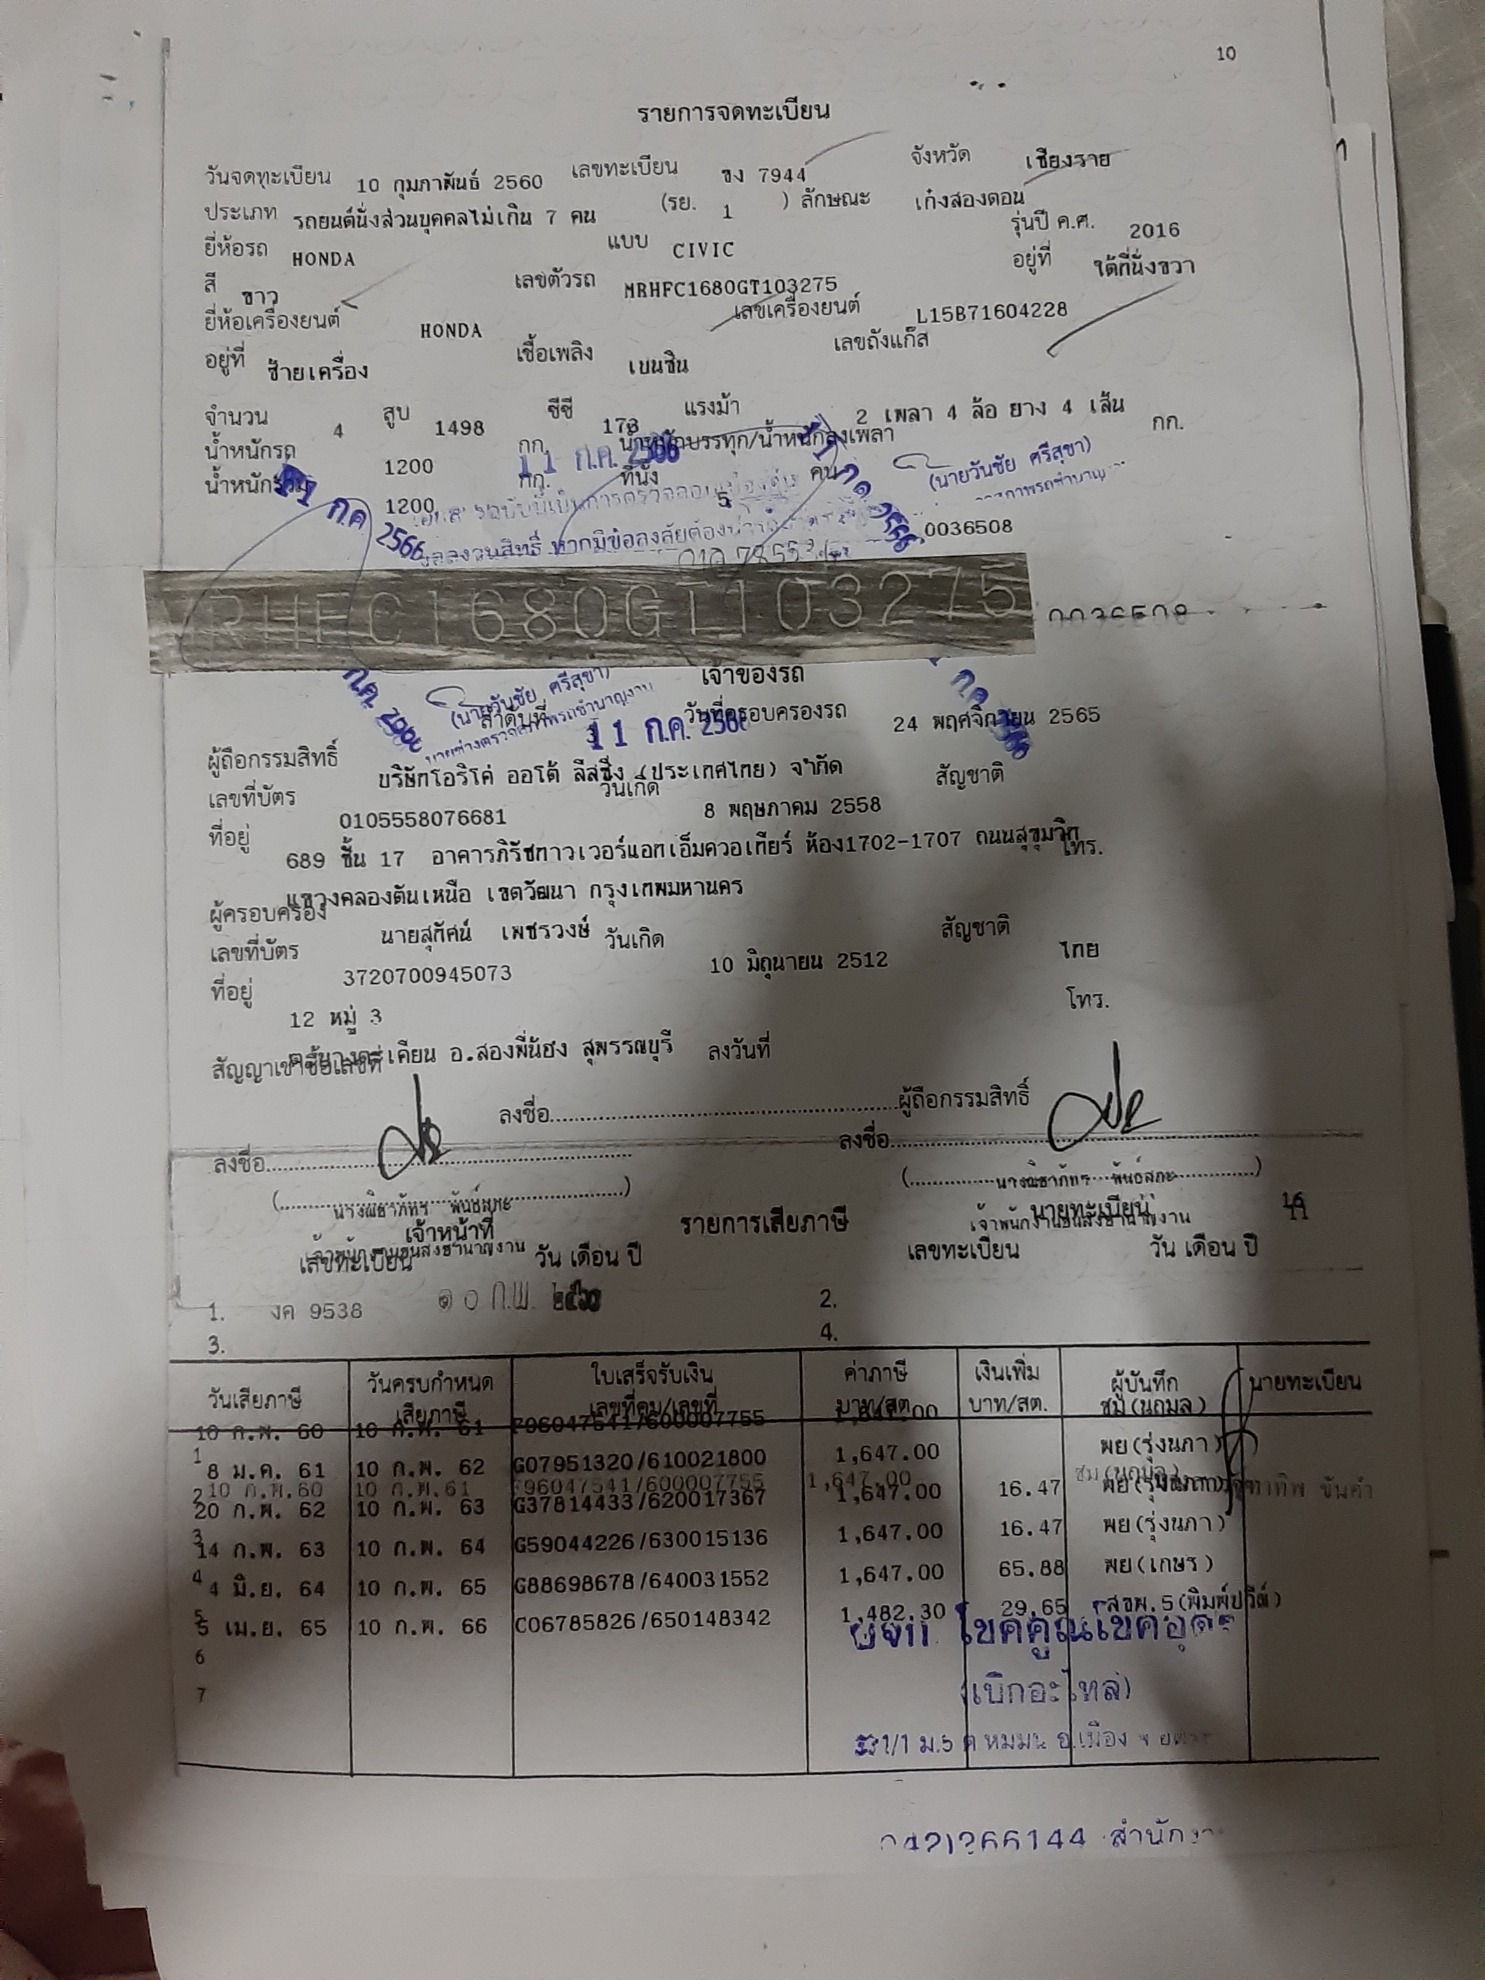 10
รายการจดทะเบียน
วันจดทะเบียน 10 กุมภาพันธ์ 2560 เลขทะเบียน ขง 7944 จังหวัด เชียงราย
ประเภท รถยนต์นั่งส่วนบุคคลไม่เกิน 7 คน (รย. 1 ) ลักษณะ เก๋งสองตอน
ยี่ห้อรถ HONDA แบบ CIVIC รุ่นปี ค.ศ. 2016
สี ขาว เลขตัวรถ MRHFC1680GT103275 อยู่ที่ ใต้ที่นั่งขวา
ยี่ห้อเครื่องยนต์ HONDA เลขเครื่องยนต์ L15B71604228
อยู่ที่ ซ้ายเครื่อง เชื้อเพลิง เบนซิน เลขถังแก๊ส
จำนวน 4 สูบ 1498 ซีซี 173 แรงม้า 2 เพลา 4 ล้อ ยาง 4 เส้น
น้ำหนักรถ 1200 กก. น้ำหนักบรรทุก/น้ำหนักลงเพลา กก.
น้ำหนักรวม 1200 กก. ที่นั่ง 5 คน
11 ก.ค. 2566
(นายวันชัย ศรีสุขา)
11 ก.ค. 2566
0036508
RHFC1680GT103275
เจ้าของรถ
(นายวันชัย ศรีสุขา)
ลำดับที่ 3 วันที่ครอบครองรถ 24 พฤศจิกายน 2565
11 ก.ค. 2566
ผู้ถือกรรมสิทธิ์ บริษัทโอริโค่ ออโต้ ลีสซิ่ง (ประเทศไทย) จำกัด
เลขที่บัตร 0105558076681 วันเกิด 8 พฤษภาคม 2558 สัญชาติ
ที่อยู่ 689 ชั้น 17 อาคารภิรัชทาวเวอร์แอทเอ็มควอเทียร์ ห้อง1702-1707 ถนนสุขุมวิท โทร.
แขวงคลองตันเหนือ เขตวัฒนา กรุงเทพมหานคร
ผู้ครอบครอง นายสุทัศน์ เพชรวงษ์
เลขที่บัตร 3720700945073 วันเกิด 10 มิถุนายน 2512 สัญชาติ ไทย
ที่อยู่ 12 หมู่ 3 โทร.
ต.บางตะเคียน อ.สองพี่น้อง สุพรรณบุรี
สัญญาเช่าซื้อเลขที่ ลงวันที่
ลงชื่อ ผู้ถือกรรมสิทธิ์
ลงชื่อ ลงชื่อ
เจ้าหน้าที่ นายทะเบียน
เจ้าพนักงานขนส่งชำนาญงาน เจ้าพนักงานขนส่งชำนาญงาน
รายการเสียภาษี 16
เลขทะเบียน วัน เดือน ปี เลขทะเบียน วัน เดือน ปี
1. งค 9538 ๑๐ ก.พ. 2.
3. 4.
วันเสียภาษี วันครบกำหนดเสียภาษี ใบเสร็จรับเงิน เลขที่คุม/เลขที่ ค่าภาษี บาท/สต. เงินเพิ่ม บาท/สต. ผู้บันทึก นายทะเบียน
10 ก.พ. 60 10 ก.พ. 61 F96047541/600007755 1,647.00 ชม(นฤมล)
1 8 ม.ค. 61 10 ก.พ. 62 G07951320/610021800 1,647.00 ผย(รุ่งนภา)
10 ก.พ.60 10 ก.พ.61 F96047541/600007755 1,647.00 ชม(นฤมล)
2 20 ก.พ. 62 10 ก.พ. 63 G37814433/620017367 1,647.00 16.47 ผย(รุ่งนภา)
3 14 ก.พ. 63 10 ก.พ. 64 G59044226/630015136 1,647.00 16.47 ผย(รุ่งนภา)
4 4 มิ.ย. 64 10 ก.พ. 65 G88698678/640031552 1,647.00 65.88 ผย(เกษร)
5 5 เม.ย. 65 10 ก.พ. 66 C06785826/650148342 1,482.30 29.65 สขพ.5(พิมพ์ปวีณ์)
6
7
โชคคูณโชคอุดร
(เบิกอะไหล่)
สำนักงาน